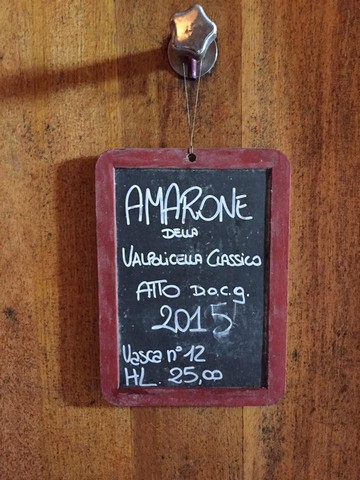 AMARONE
DELLA
VALPOLICELLA CLASSICO
ATTO D.O.C.G.
2015
Vasca n° 12
HL. 25,00